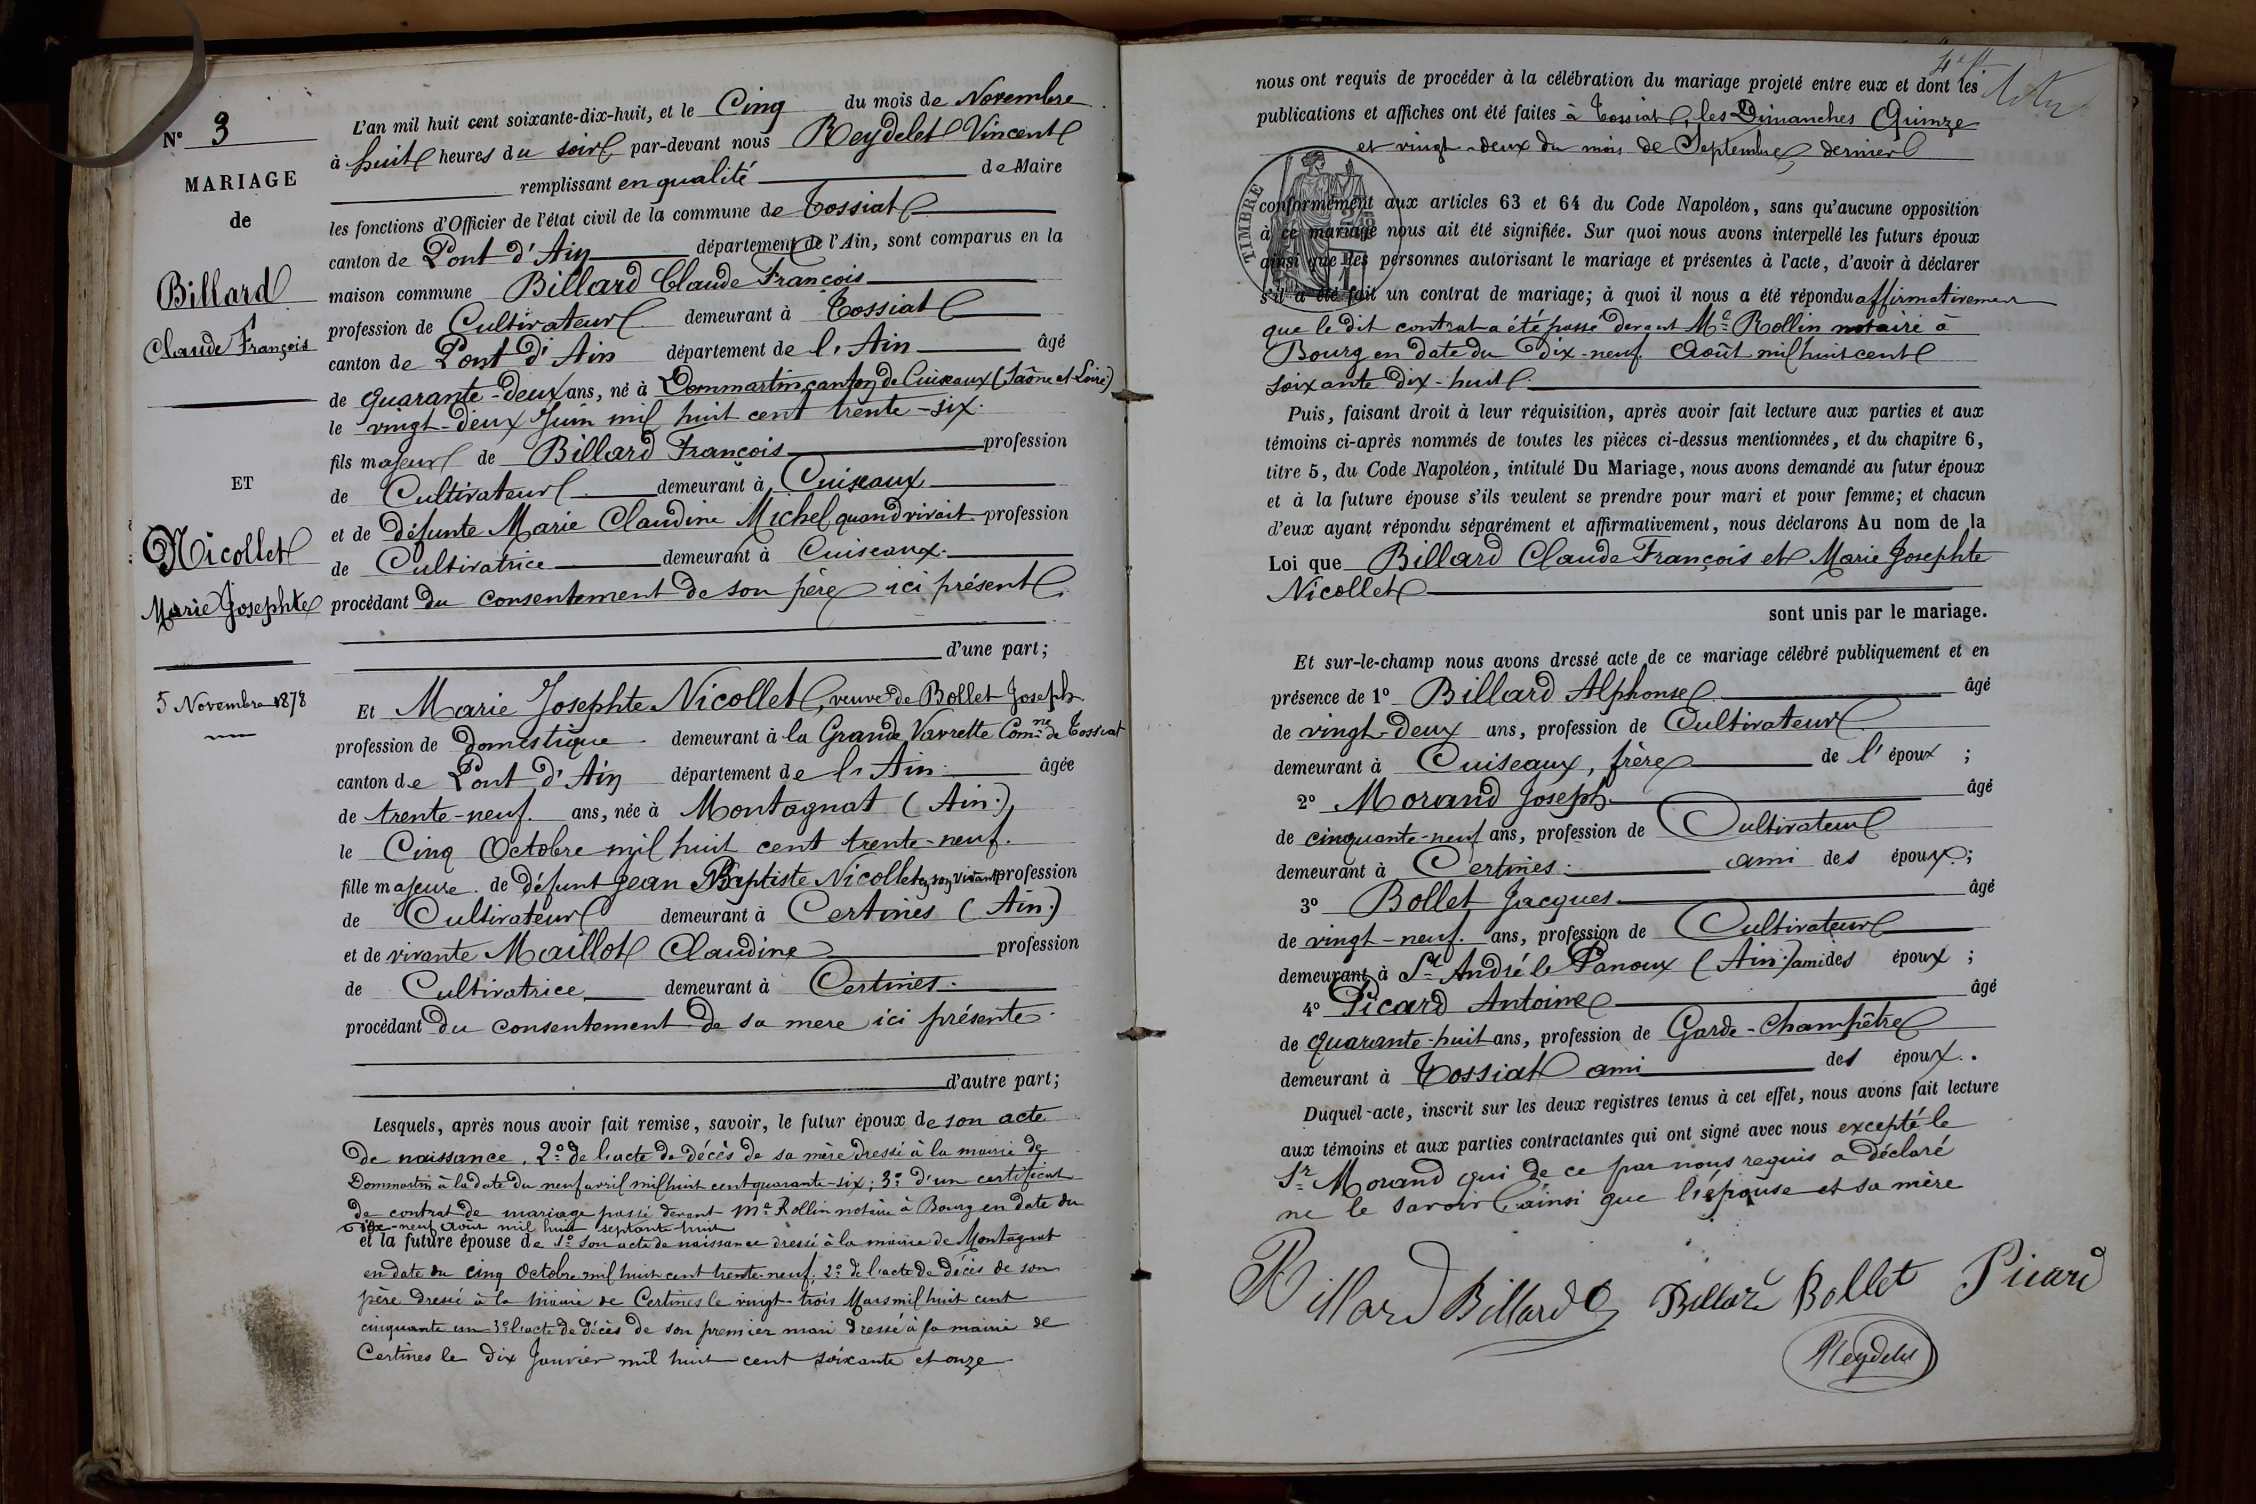 N° 3
MARIAGE
de
Billard
Claude François
ET
Nicollet
Marie Josephte
5 Novembre 1878
L'an mil huit cent soixante-dix-huit, et le Cinq du mois de Novembre
à huit heures du soir par-devant nous Reydelet Vincent
remplissant en qualité de Maire
les fonctions d'Officier de l'état civil de la commune de Tossiat
canton de Pont d'Ain département de l'Ain, sont comparus en la
maison commune Billard Claude François
profession de Cultivateur demeurant à Tossiat
canton de Pont d'Ain département de l'Ain âgé
de quarante-deux ans, né à Dommartin canton de Cuiseaux (Saône et Loire)
le vingt-deux Juin mil huit cent trente-six.
fils majeur de Billard François profession
de Cultivateur demeurant à Cuiseaux
et de défunte Marie Claudine Michel quand vivait profession
de Cultivatrice demeurant à Cuiseaux.
procédant du consentement de son père ici présent
d'une part;
Et Marie Josephte Nicollet, veuve de Bollet Joseph
profession de domestique demeurant à la Grande Vavrette Comne de Tossiat
canton de Pont d'Ain département de l'Ain. âgée
de trente-neuf. ans, née à Montagnat (Ain.)
le Cinq Octobre mil huit cent trente-neuf.
fille majeure. de défunt Jean Baptiste Nicollet en son vivant profession
de Cultivateur demeurant à Certines (Ain.)
et de vivante Maillot Claudine profession
de Cultivatrice demeurant à Certines.
procédant du consentement de sa mere ici présente.
d'autre part;
Lesquels, après nous avoir fait remise, savoir, le futur époux de son acte
de naissance. 2° de l'acte de décès de sa mère dressé à la mairie de
Dommartin à la date du neuf avril mil huit cent quarante-six; 3° d'un certificat
de contrat de mariage passé devant Me Rollin notaire à Bourg en date du
dix-neuf Août mil huit septante-huit
et la future épouse de 1° son acte de naissance dressé à la mairie de Montagnat
en date du cinq Octobre mil huit cent trente-neuf; 2° de l'acte de décès de son
père dressé à la mairie de Certines le vingt-trois Mars mil huit cent
cinquante un 3° l'acte de décès de son premier mari dressé à la mairie de
Certines le dix Janvier mil huit cent soixante et onze
nous ont requis de procéder à la célébration du mariage projeté entre eux et dont les
publications et affiches ont été faites à Tossiat, les Dimanches Quinze
et vingt-deux du mois de Septembre dernier
TIMBRE
conformément aux articles 63 et 64 du Code Napoléon, sans qu'aucune opposition
à ce mariage nous ait été signifiée. Sur quoi nous avons interpellé les futurs époux
ainsi que les personnes autorisant le mariage et présentes à l'acte, d'avoir à déclarer
s'il a été fait un contrat de mariage; à quoi il nous a été répondu affirmativement
que le dit contrat a été passé devant Me Rollin notaire à
Bourg en date du dix-neuf Août mil huit cent
soixante dix-huit.
Puis, faisant droit à leur réquisition, après avoir fait lecture aux parties et aux
témoins ci-après nommés de toutes les pièces ci-dessus mentionnées, et du chapitre 6,
titre 5, du Code Napoléon, intitulé Du Mariage, nous avons demandé au futur époux
et à la future épouse s'ils veulent se prendre pour mari et pour femme; et chacun
d'eux ayant répondu séparément et affirmativement, nous déclarons Au nom de la
Loi que Billard Claude François et Marie Josephte
Nicollet
sont unis par le mariage.
Et sur-le-champ nous avons dressé acte de ce mariage célébré publiquement et en
présence de 1° Billard Alphonse âgé
de vingt-deux ans, profession de Cultivateur
demeurant à Cuiseaux, frère de l'époux ;
2° Morand Joseph. âgé
de cinquante-neuf ans, profession de Cultivateur
demeurant à Certines. ami des époux;
3° Bollet Jacques âgé
de vingt-neuf. ans, profession de Cultivateur
demeurant à St André le Panoux (Ain.) ami des époux ;
4° Picard Antoine âgé
de quarante-huit ans, profession de Garde-Champêtre
demeurant à Tossiat ami des époux.
Duquel acte, inscrit sur les deux registres tenus à cet effet, nous avons fait lecture
aux témoins et aux parties contractantes qui ont signé avec nous excepté le
Sr Morand qui de ce par nous requis a déclaré
ne le savoir ainsi que l'épouse et sa mère
Billard Billard Billard Bollet Picard
Reydelet